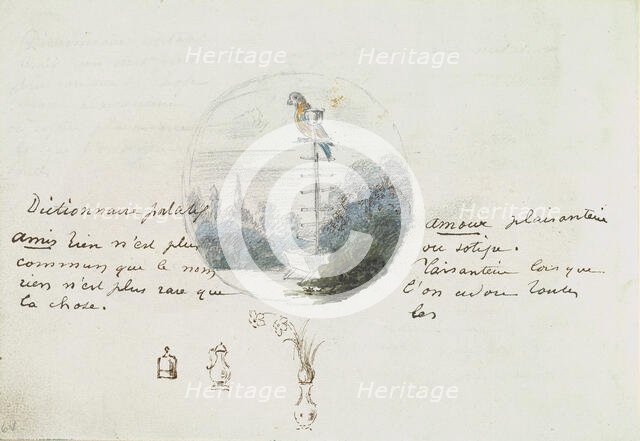 Heritage Heritage
Dictionnaire
amis rien n'est plus
commun que le nom
rien n'est plus rare que
la chose.
amour plaisanterie
ou sotise.
Plaisanterie lorsque
l'on adore toutes
les
Heritage Heritage
Heritage Heritage
64